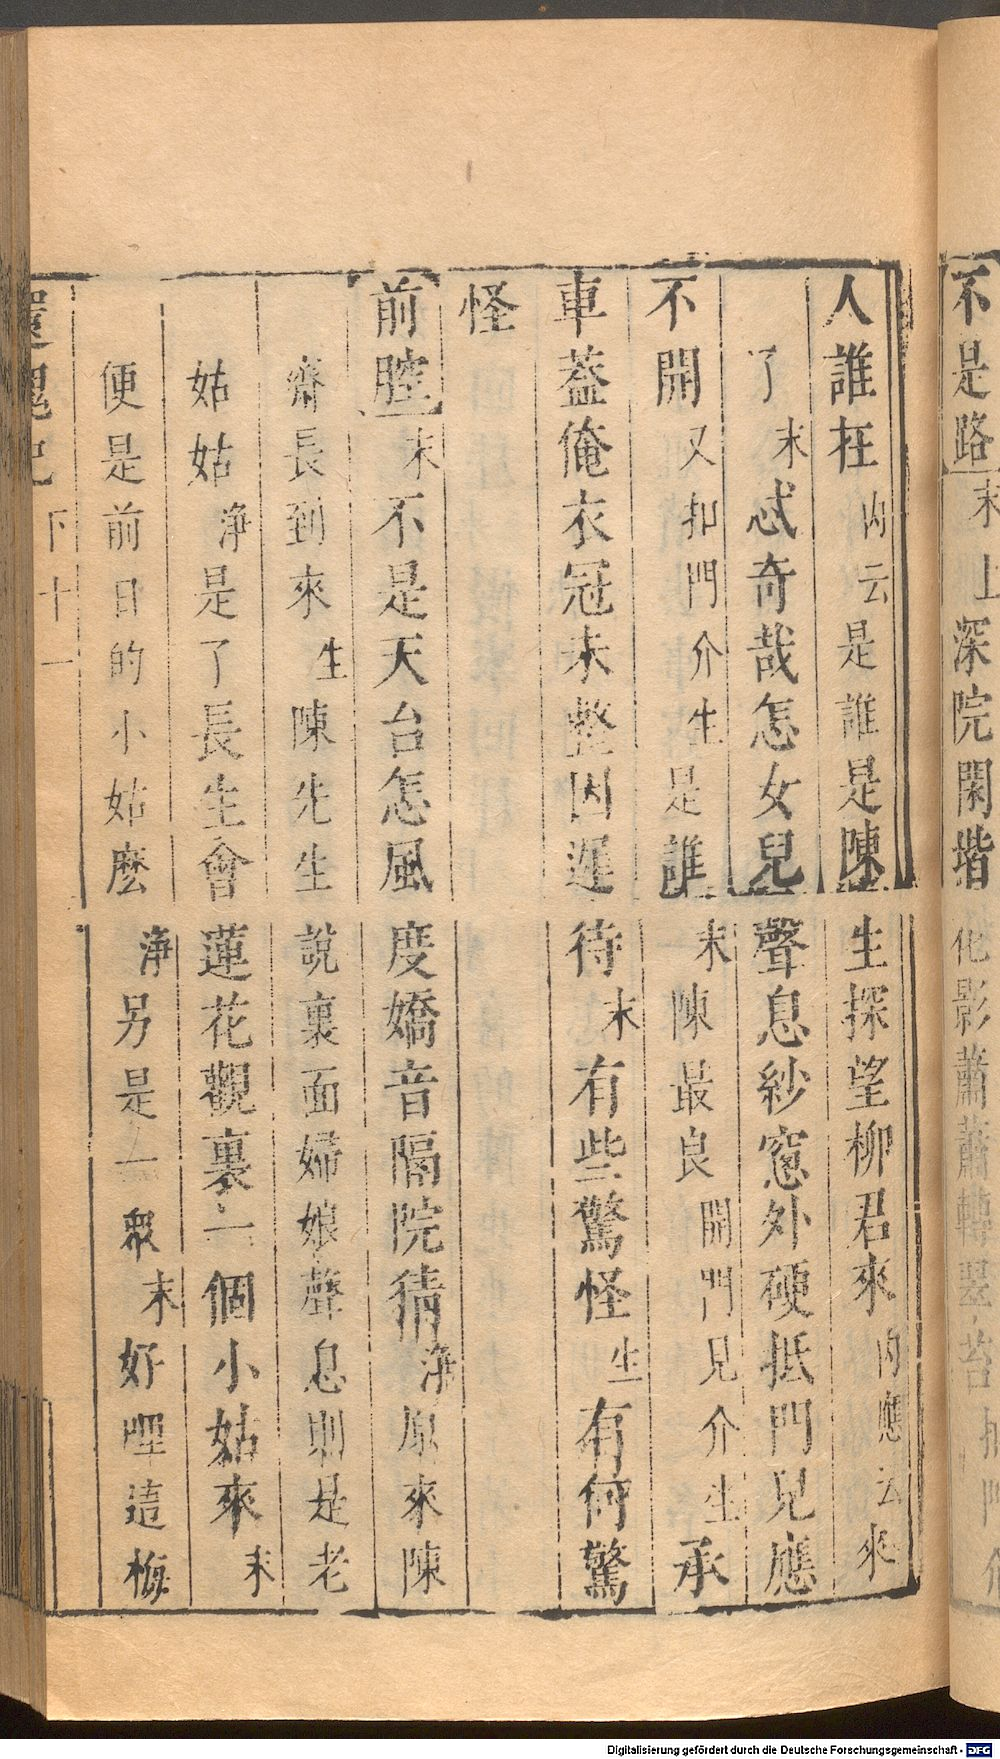 不是路末上深院閑堦花影蕭蕭轉翠苔扣門介
人誰在內云是誰是陳生探望柳君來內應云來
了末忒奇哉怎女兒聲息紗窓外硬抵門兒應
不開又扣門介生是誰末陳最良開門見介生承
車蓋俺衣冠未整因遲待末有些驚怪生有何驚
怪
前腔末不是天台怎風度嬌音隔院猜淨原來陳
齋長到來生陳先生說裏面婦娘聲息則是老
姑姑淨是了長生會蓮花觀裏一個小姑來末
便是前日的小姑麽淨另是一衆末好哩這梅
還魂記 下 十一
Digitalisierung gefördert durch die Deutsche Forschungsgemeinschaft - DFG